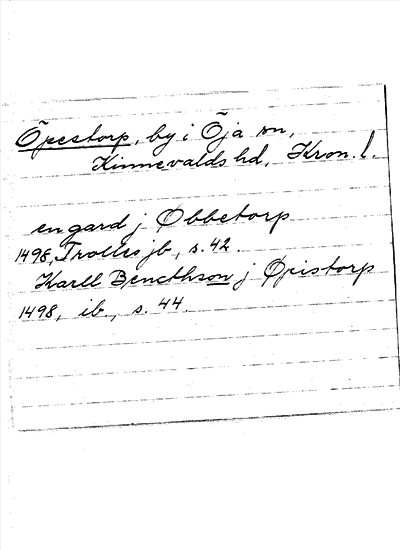 Öpestorp, by i Öja sn,
Kinnevalds hd, Kron. l.
en gard j Øbbetorp
1498, Trolles jb, s. 42.
Karll Bencthson j Øpistorp
1498, ib., s. 44.